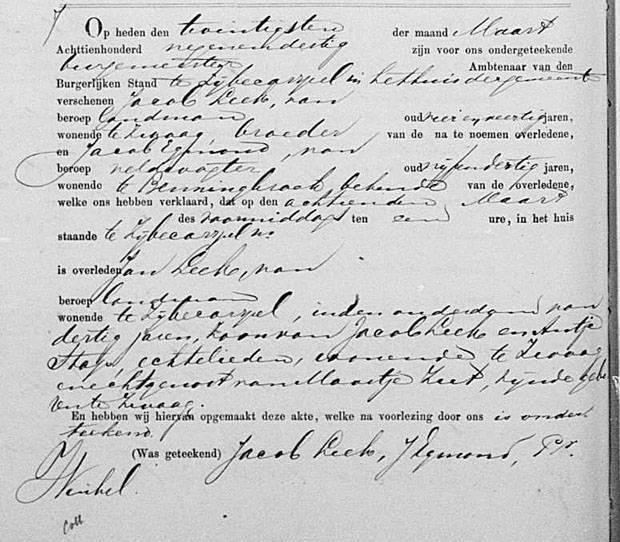 Op heden den twintigsten der maand Maart
Achttienhonderd negenendertig zijn voor ons ondergeteekende
burgemeester Ambtenaar van den
Burgerlijken Stand te Sijbecarspel in het huis der gemeente
verschenen Jacob Leek, van
beroep landman oud vier en veertig jaren,
wonende te Zwaag, broeder van de na te noemen overledene,
en Jacob Egmond, van
beroep veldwagter oud vijfendertig jaren,
wonende te Benningbroek, bekende van de overledene,
welke ons hebben verklaard, dat op den achttienden Maart
des voormiddags ten een ure, in het huis
staande te Sijbecarspel No.
is overleden Jan Leek, van
beroep landman
wonende te Sijbecarspel, in den ouderdom van
dertig jaren, zoon van Jacob Leek en Antje
Stap, echtelieden, wonende te Zwaag,
en echtgenoot van Maartje Zeet, zijnde gebo
Zwaag.
En hebben wij hiervan opgemaakt deze akte, welke na voorlezing door ons is onder
teekend.
(Was geteekend) Jacob Leek, J Egmond, Pr.
Winkel.
Coll